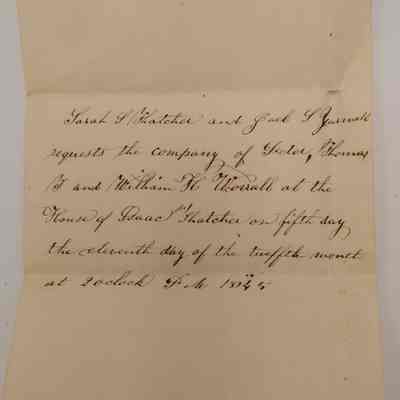 Sarah S Thatcher and Joel S Yarnall
requests the company of Peter, Thomas
T and William H Worrall at the
House of Isaac Thatcher on fifth day
the eleventh day of the twelfth month
at 2 oclock P. M. 1845